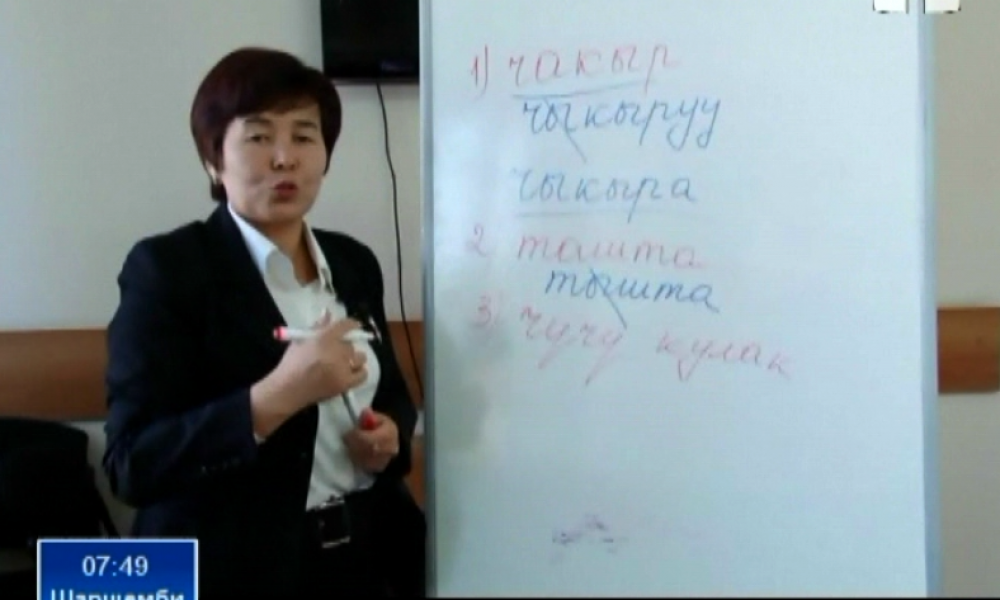 1) чакыр
чыкыруу
чыкыра
2 ташта
тышта
3) чучу кулак
07:49
Шаршемби